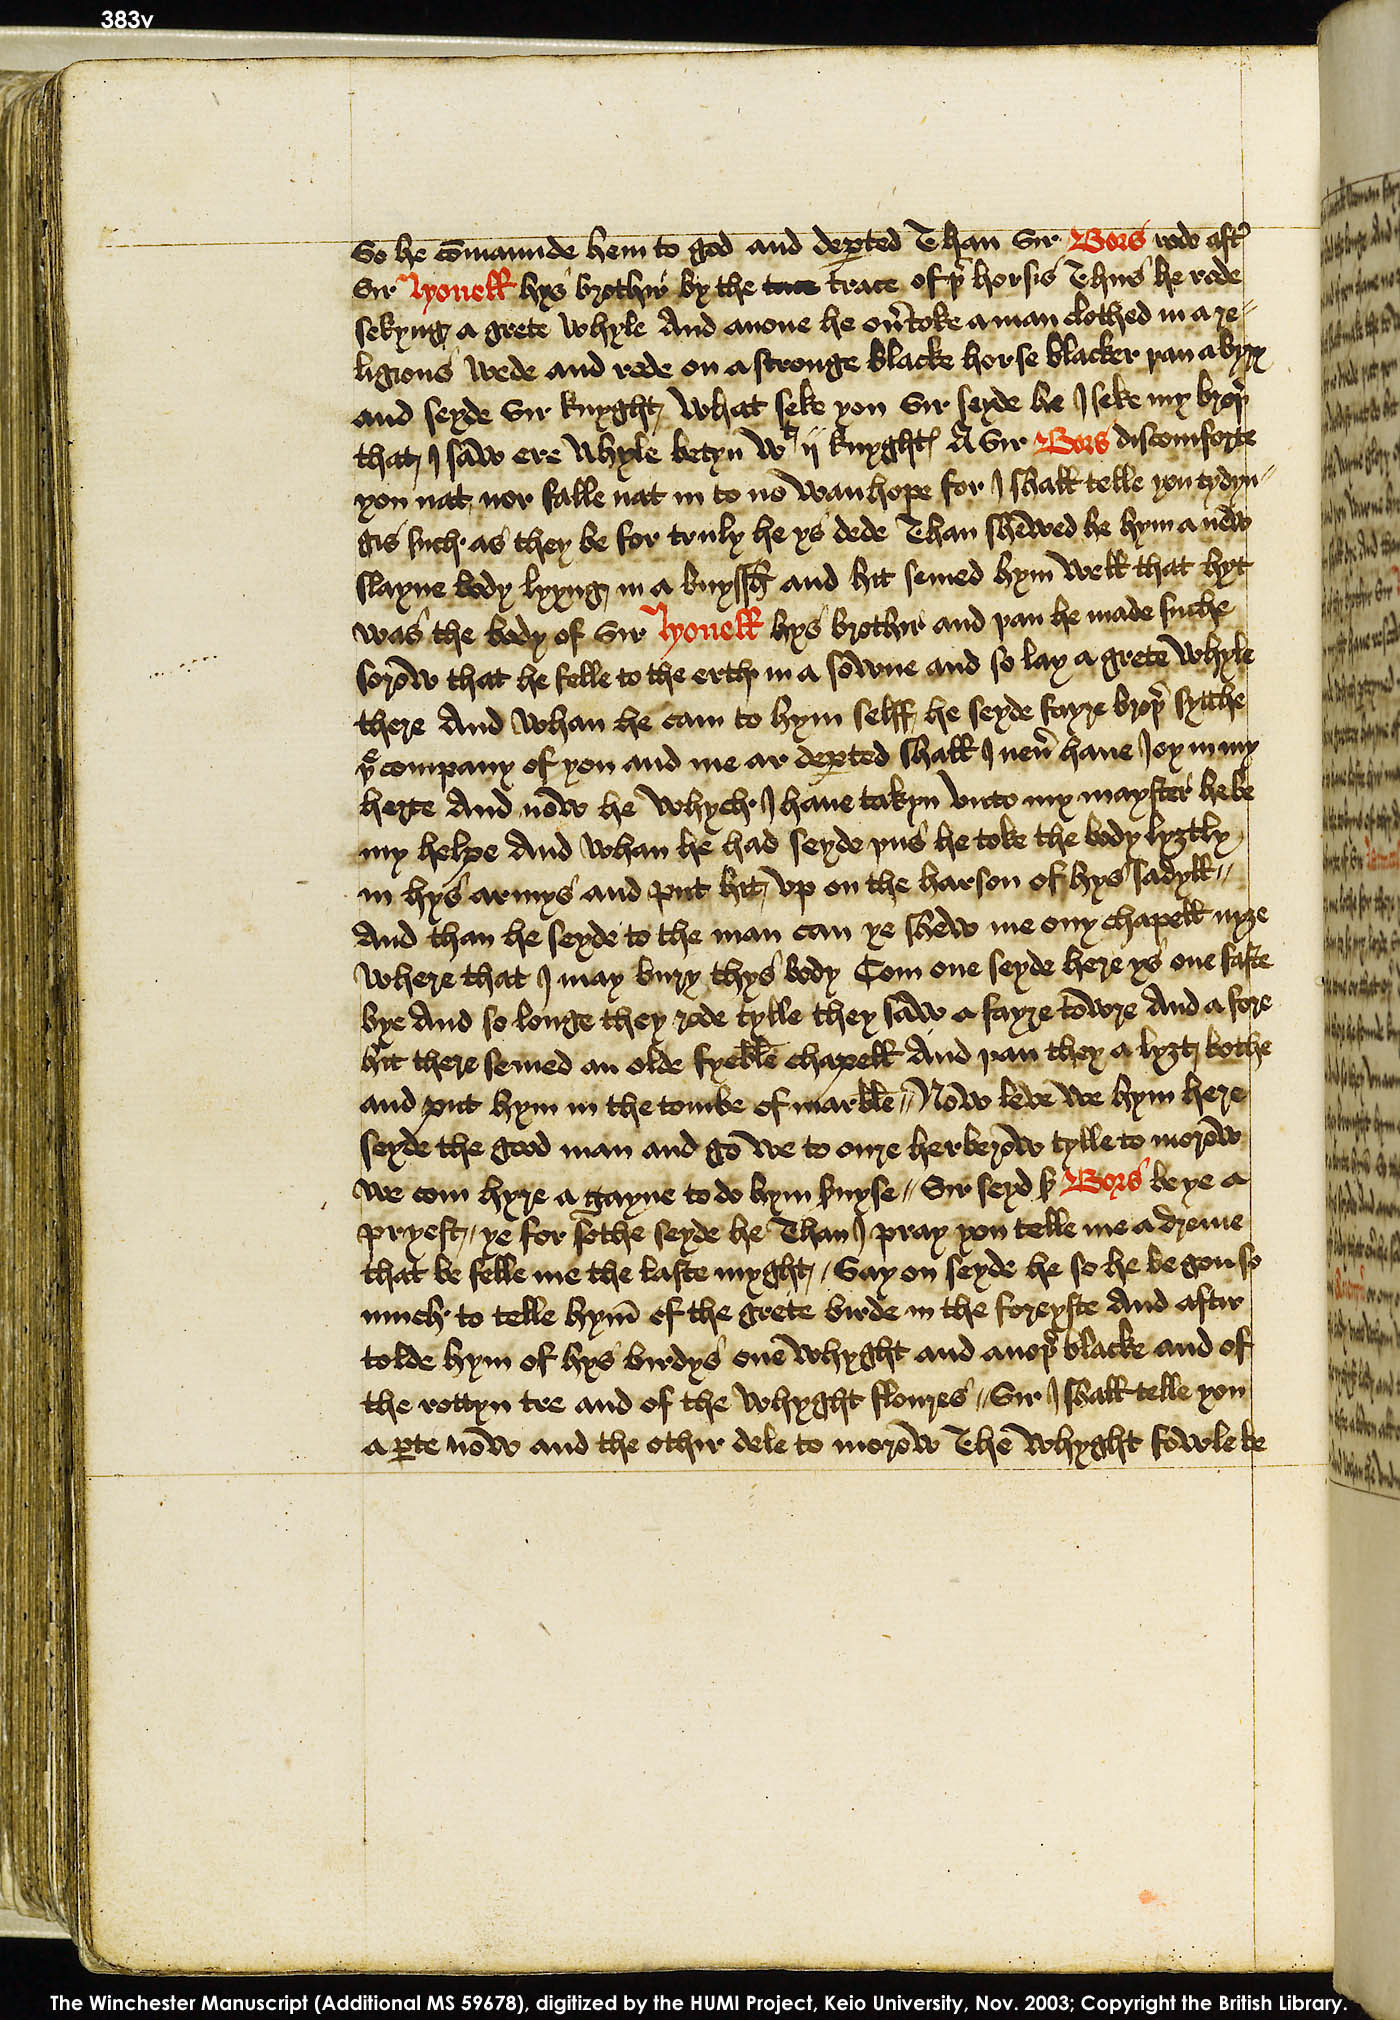 383v
So he cōmaunde hem to god and deꝑted Than Sir Bors rode aftʼ
Sir lyonell hys brothir by the trace of þʼ horsis Thus he rode
sekyng a grete whyle And anone he oūtoke a man clothed in a re-
ligious wede and rode on a stronge blacke horse blacker þan a byry
and seyde Sir knyght what seke you Sir seyde he I seke my broþʼ
that I saw ere whyle betyn wt ij knyghtꝭ A Sir Bors discomforte
you nat nor falle nat in to no wanhope for I shall telle you tydyn-
gis such as they be for truly he ys dede Than shewed he hym a new
slayne body lyyng in a buyssh and hit semed hym well that hyt
was the body of Sir lyonell hys brothir and þan he made suche
sorow that he felle to the erth in a sowne and so lay a grete whyle
there And whan he cam to hym selff he seyde fayre broþʼ sytthe
þe company of you and me ar deꝑted shall I neuʼ haue Joy in my
herte And now he whych I haue takyn vnto my mayster he be
my helpe And whan he had seyde þus he toke the body lyztly
in hys armys and put hit vp on the harson of hys sadyll //
And than he seyde to the man can ye shew me ony chapell nyze
where that I may bury thys body Com one seyde here ys one faste
bye And so longe they rode tylle they saw a fayre towre And a fore
hit there semed an olde fyeble chapell And þan they a lyzt bothe
and put hym in the tombe of marble // Now leve we hym here
seyde the good man and go we to oure herberow tylle to morow
we com hyre a gayne to do hym suyse // Sir seyd k Bors be ye a
pryest // ye for sothe seyde he Than I pray you telle me a dreme
that be felle me the laste nyght / Say on seyde he so he begon so
much to telle hym of the grete birde in the foreyste And aftir
tolde hym of hys birdys one whyght and anoþʼ blacke and of
the rottyn tre and of the whyght floures // Sir I shall telle you
a ꝑte now and the othir dele to morow The whyght fowle be
The Winchester Manuscript (Additional MS 59678), digitized by the HUMI Project, Keio University, Nov. 2003; Copyright the British Library.